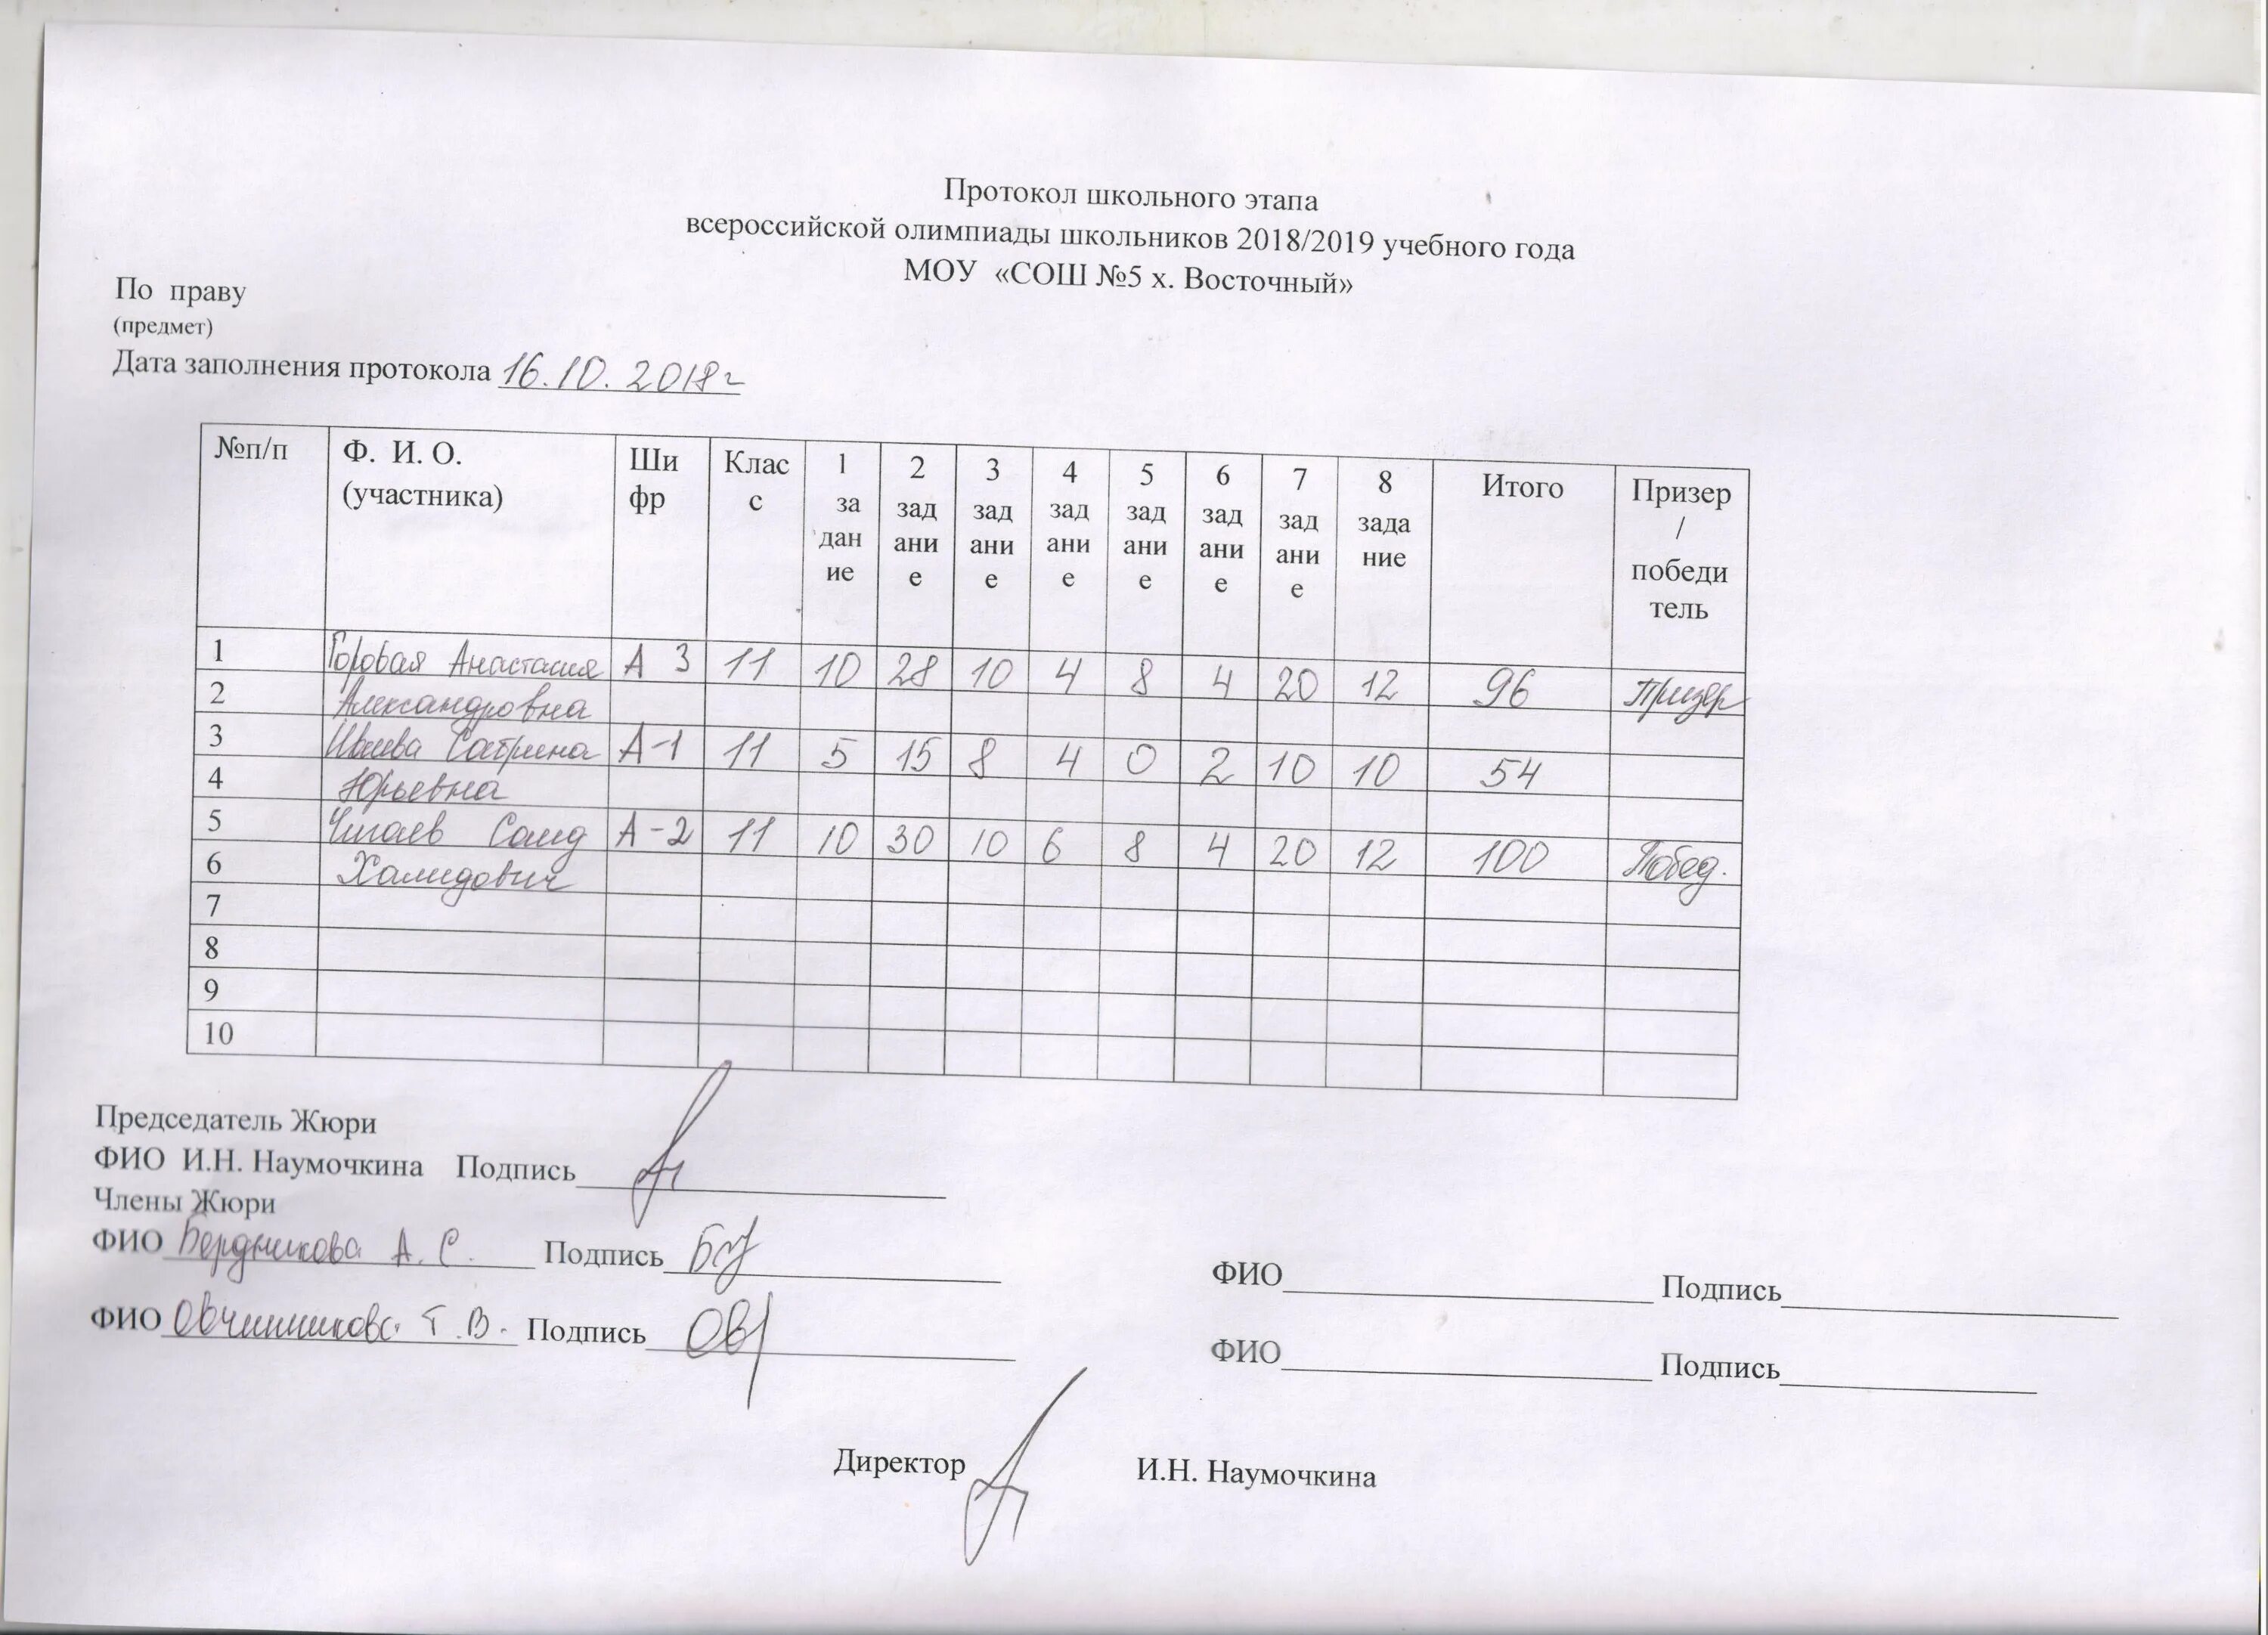 Протокол школьного этапа
всероссийской олимпиады школьников 2018/2019 учебного года
МОУ «СОШ №5 х. Восточный»
По праву
(предмет)
Дата заполнения протокола 16.10.2018г
№п/п Ф. И. О. (участника) Ши фр Клас с 1 за дан ие 2 зад ани е 3 зад ани е 4 зад ани е 5 зад ани е 6 зад ани е 7 зад ани е 8 зада ние Итого Призер / победи тель
1 Горовая Анастасия А 3 11 10 28 10 4 8 4 20 12 96 Призер
2 Александровна
3 Сабрина А-1 11 5 15 8 4 0 2 10 10 54
4 Юрьевна
5 Саид А-2 11 10 30 10 6 8 4 20 12 100 Побед.
6 Халидович
7
8
9
10
Председатель Жюри
ФИО И.Н. Наумочкина Подпись
Члены Жюри
ФИО Бердникова А. С. Подпись
ФИО Подпись
ФИО Овчинникова Т.В. Подпись
ФИО Подпись
Директор И.Н. Наумочкина